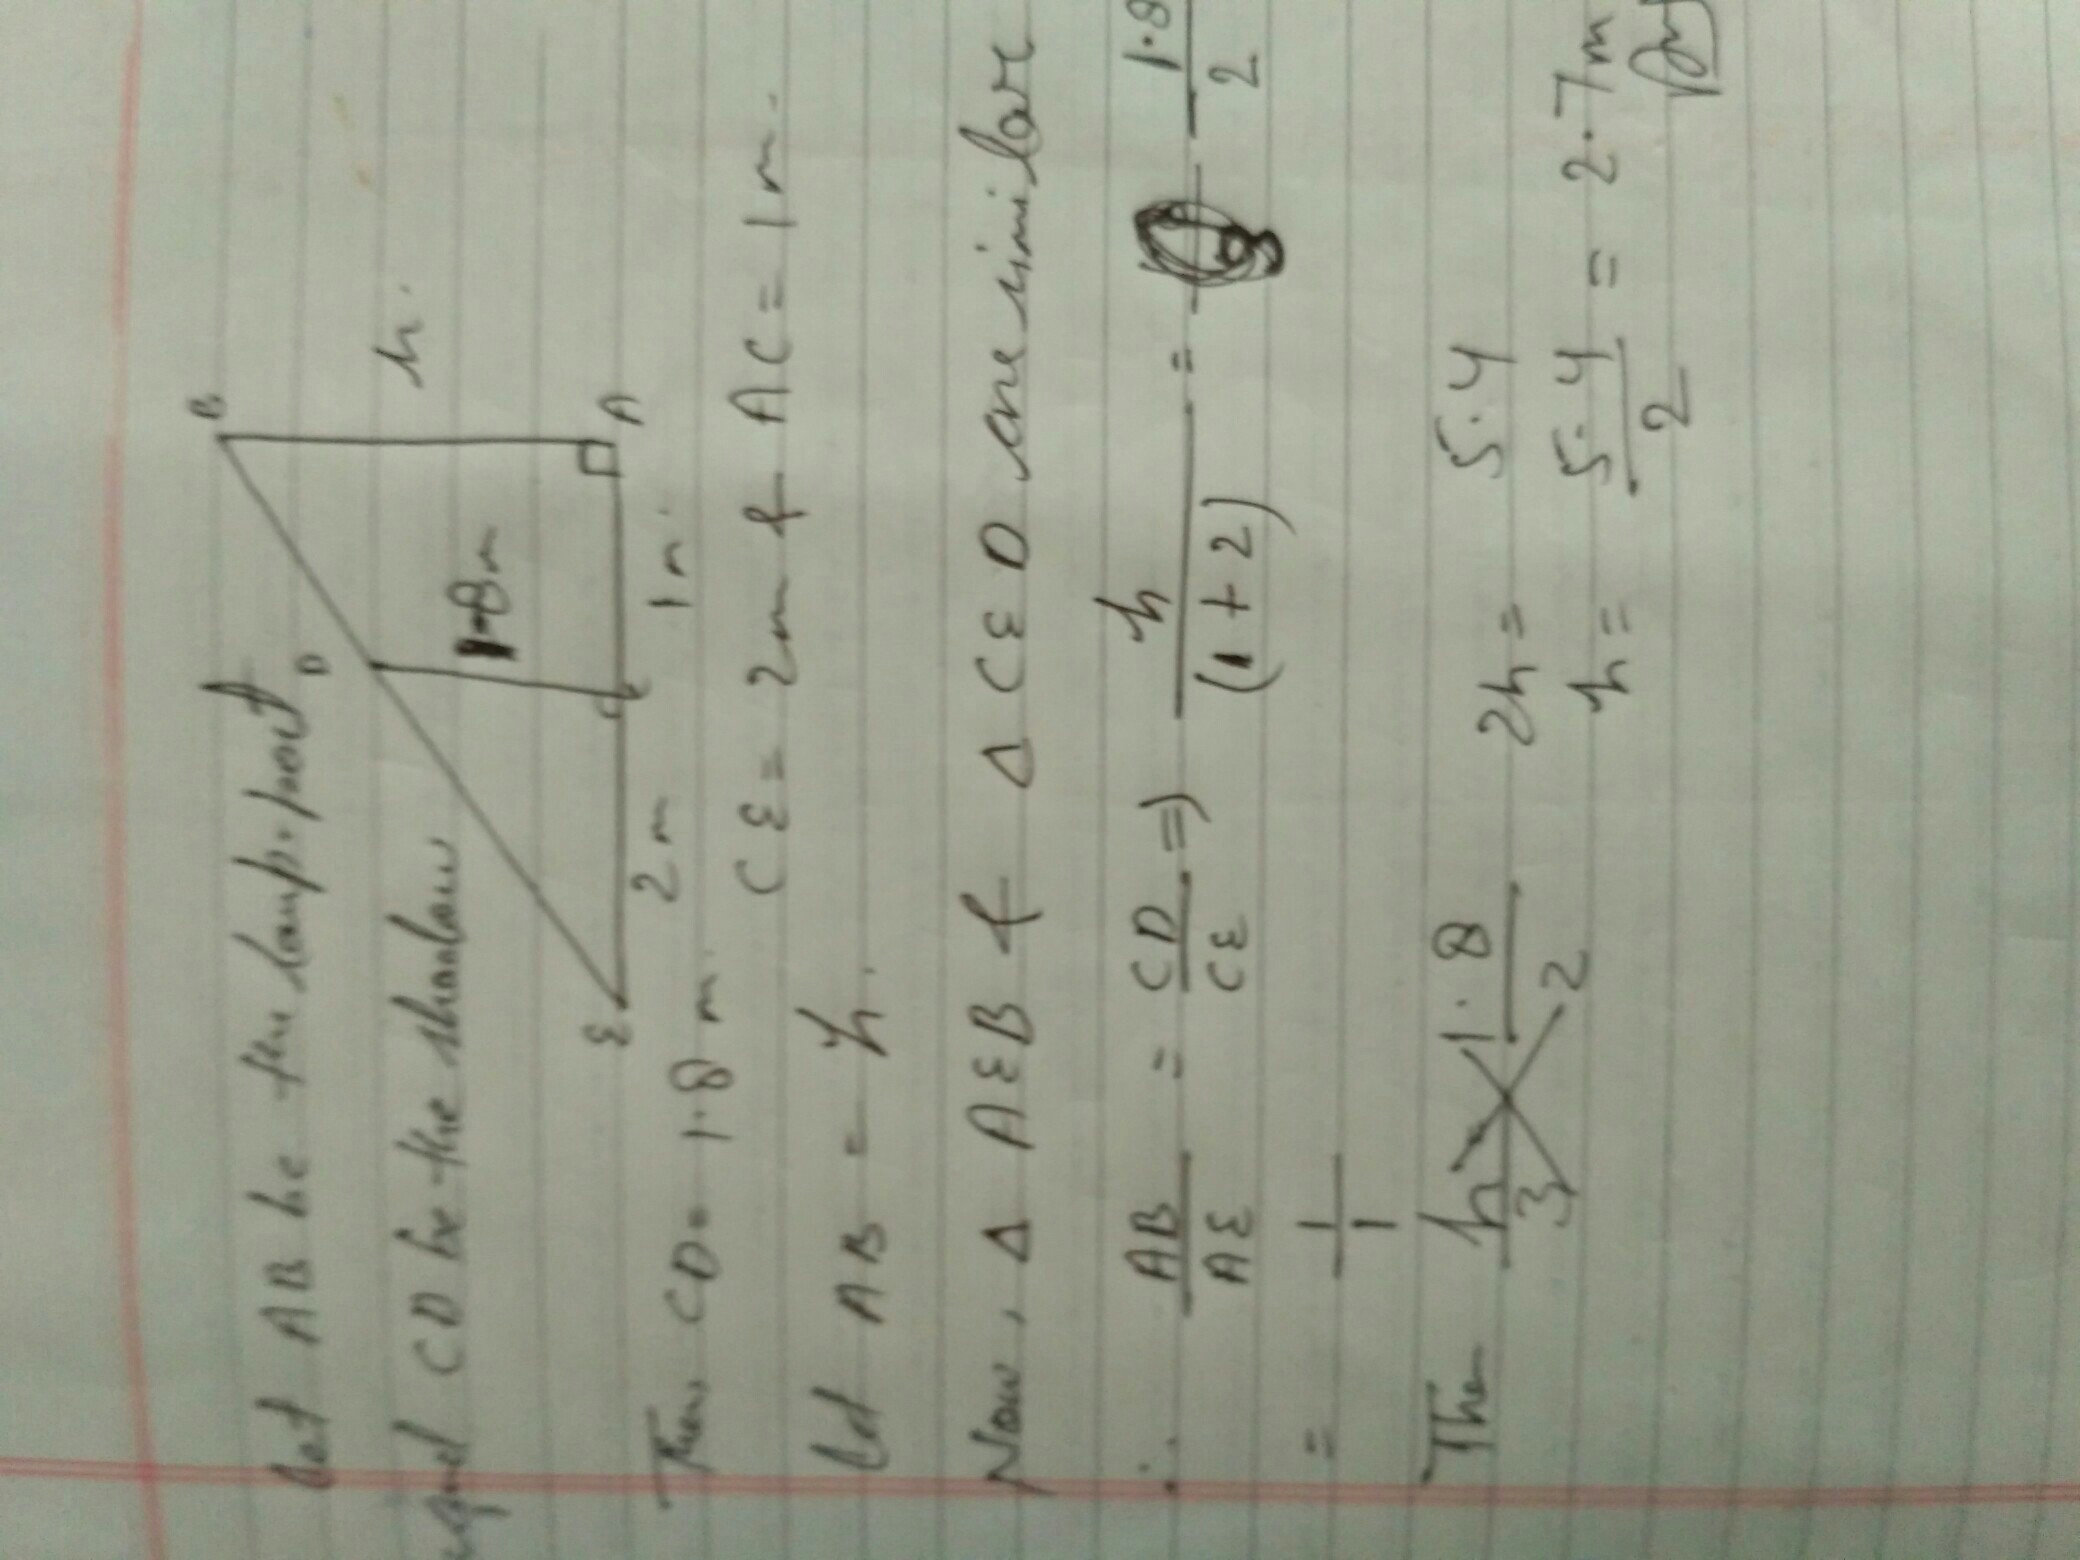 Let AB be the lamp-post
and CD be the shadow
B
D
h.
1.8m
E
C
A
2m
1m.
Then, CD = 1.8 m. CE = 2m & AC = 1m.
Let AB = h.
Now, Δ AEB & Δ CED are similar
∴ AB/AE = CD/CE ⇒ h/(1+2) = 1.8/2
= 1/1
Then h/3 1.8/2 2h = 5.4
h = 5.4/2 = 2.7m